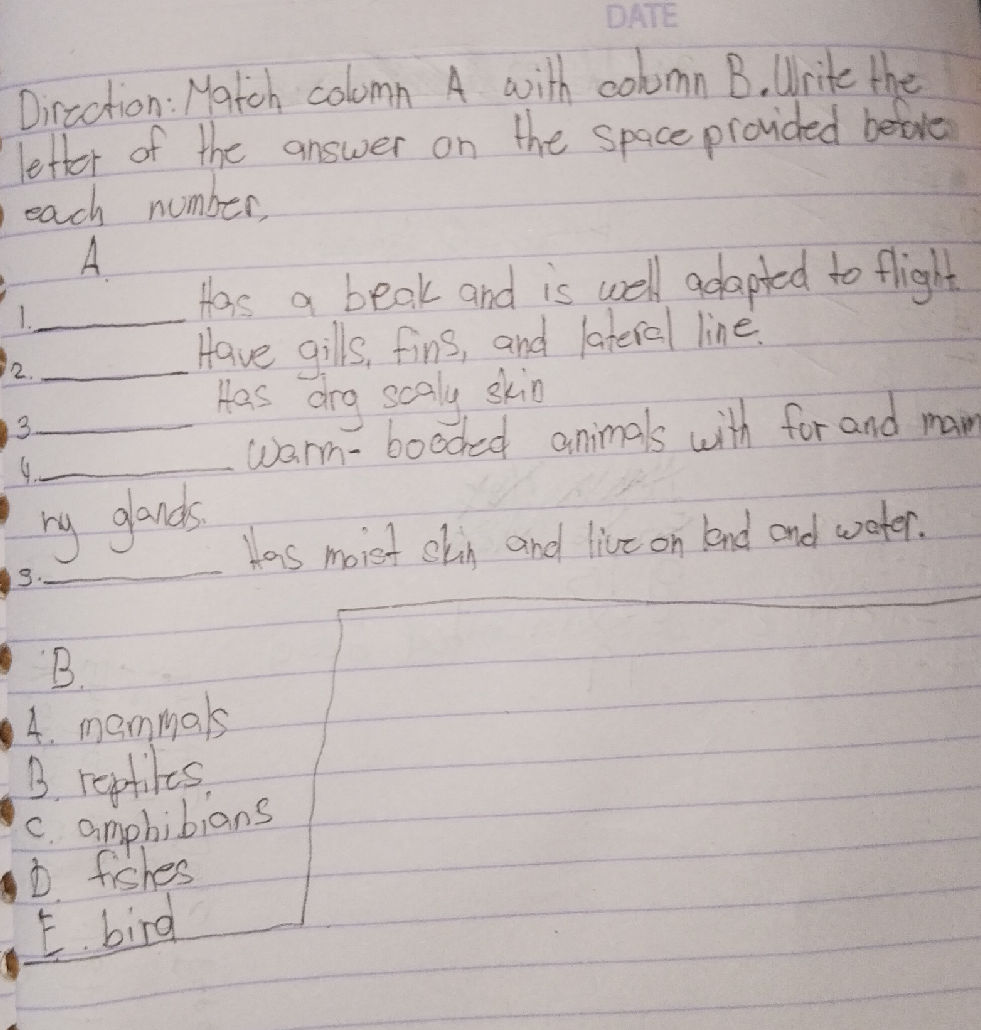 DATE
Direction: Match column A with column B. Write the
letter of the answer on the space provided before
each number.
A
1. Has a beak and is well adapted to flight.
2. Have gills, fins, and lateral line.
3. Has drg scaly skin
4. Warm-booded animals with for and mam
ry glands.
5. Has moist skin and live on land and water.
B.
A. mammals
B. reptiles.
C. amphibians
D. fishes
E. bird